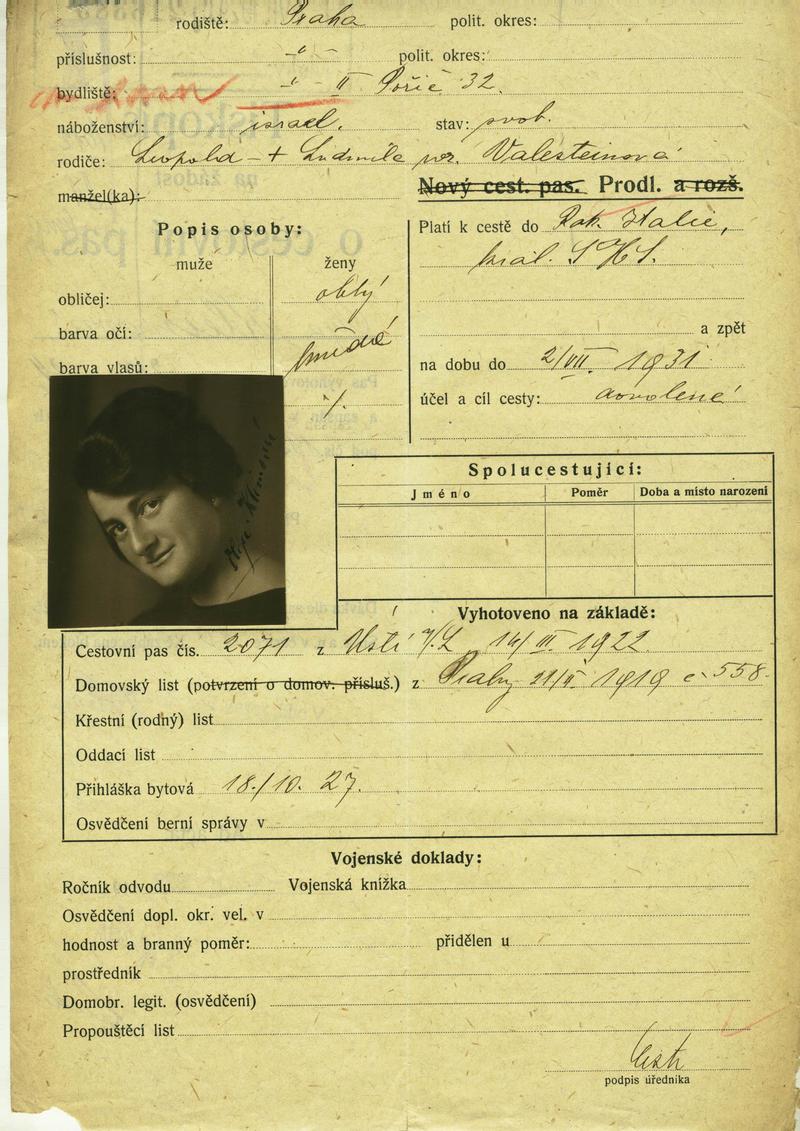 rodiště: Praha polit. okres:
příslušnost: -"- polit. okres:
bydliště: -"- II Poříč 32.
náboženství: israel. stav: svob.
rodiče: Leopold - + Ludmila roz. Valesteinová
manžel(ka):
Nový cest. pas. Prodl. a rozš.
Popis osoby:
muže ženy
obličej: oblý
barva očí: hnědé
barva vlasů:
Platí k cestě do Rak. Italie,
král. S H S.
a zpět
na dobu do 2/VII. 1931
účel a cíl cesty: dovolená
Olga
Spolucestující:
Jméno Poměr Doba a místo narození
Vyhotoveno na základě:
Cestovní pas čís. 2071 z Ústí n/L 14/III. 1922
Domovský list (potvrzení o domov. přísluš.) z Prahy 21/II. 1919 č 558.
Křestní (rodný) list
Oddací list
Přihláška bytová 18./10. 27.
Osvědčení berní správy v
Vojenské doklady:
Ročník odvodu Vojenská knížka
Osvědčení dopl. okr. vel. v
hodnost a branný poměr: přidělen u
prostředník
Domobr. legit. (osvědčení)
Propouštěcí list
podpis úředníka